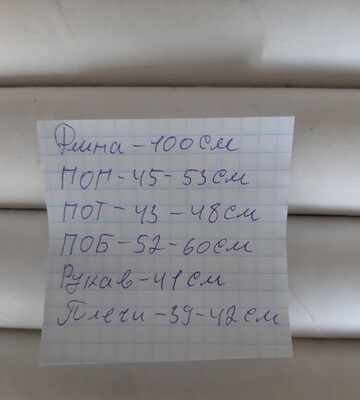 Длина - 100 см
ПОП - 45 - 53 см
ПОТ - 43 - 48 см
ПОБ - 52 - 60 см
Рукав - 41 см
Плечи - 39 - 42 см